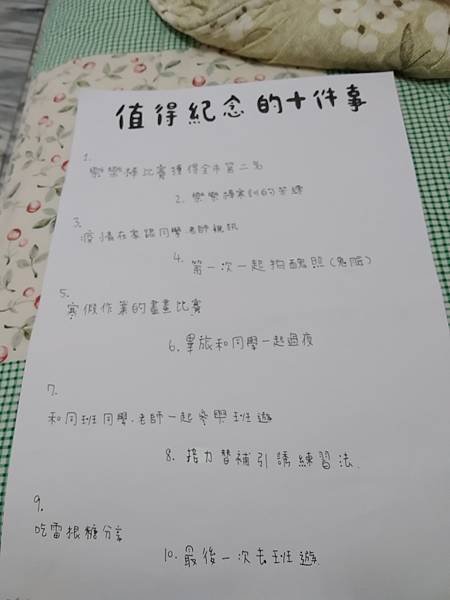 值得紀念的十件事
1.
樂樂棒比賽獲得全市第二名
2. 樂樂棒索刮的苦練
3.
疫情在家跟同學.老師視訊
4.
第一次一起拍醜照(鬼臉)
5.
寒假作業的畫畫比賽
6. 畢旅和同學一起過夜
7.
和同班同學.老師一起參與班遊
8. 接力替補引誘練習法.
9.
吃雷根糖分享
10. 最後一次去班遊.